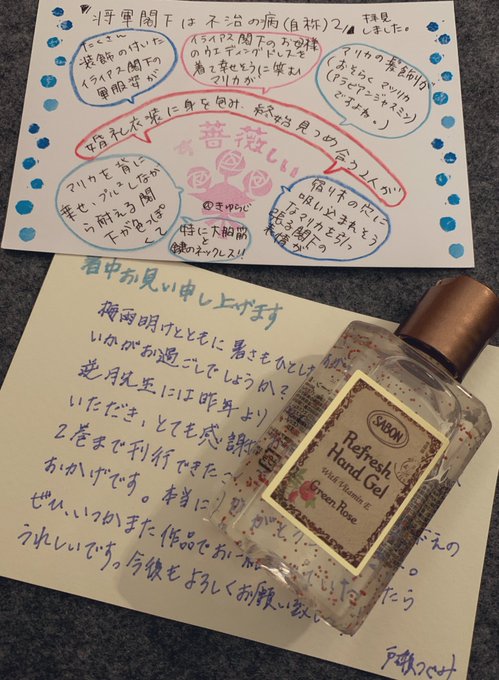 将軍閣下は不治の病(自称)2
拝見
しました。
たくさん
装飾の付いた
イライアス閣下の
軍服姿が
イライアス閣下のお母様
のウエディングドレスを
着て幸せそうに笑む
マリカが
マリカの髪飾りが
(おそらく マツリカ
(アラビアンジャスミン)
ですよね。)
婚礼衣装に身を包み、終始見つめ合う2人が
薔薇しい
マリカを背に
乗せ、プルプルしなが
ら耐える閣
下が色っぽ
くて
@きゅらじ
特に大胸筋
と
鍵のネックレス!!
宿り木の穴に
吸いこまれそう
なマリカを引っ
張る閣下の
表情が
暑中お見い申し上げます
梅雨明けとともに暑さもひとしお
いかがお過ごしでしょうか?
先生には昨年より
いただき、とても感謝
2巻まで刊行できた
おかげです。本当に
ぜひ、いつかまた作品でお
うれしいです。今後もよろしくお願い致し
SABON
Refresh
Hand Gel
With Vitamin E
Green Rose